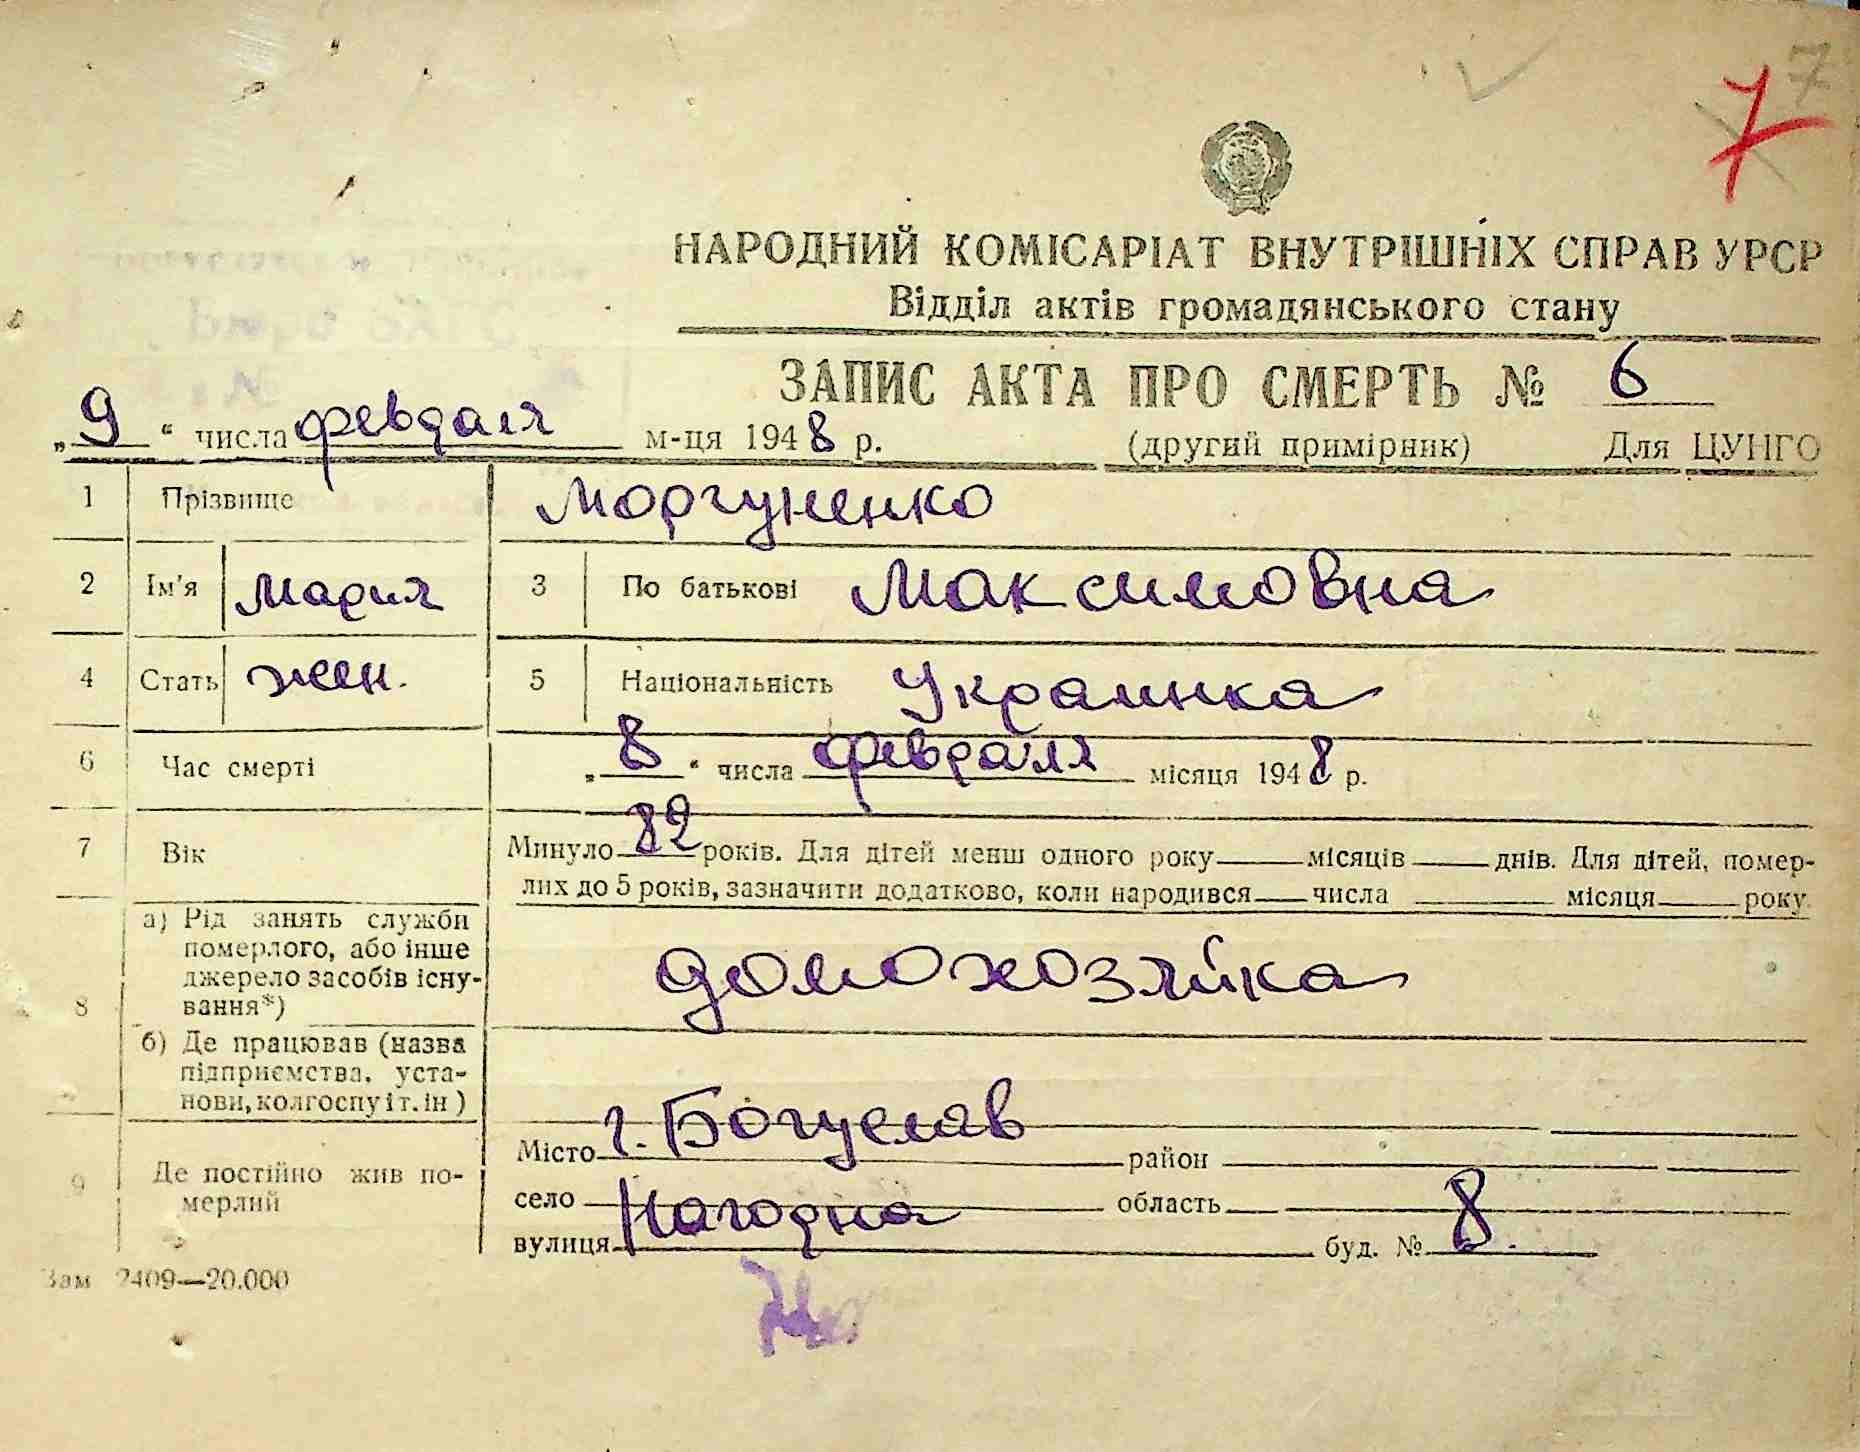 7
7
НАРОДНИЙ КОМІСАРІАТ ВНУТРІШНІХ СПРАВ УРСР
Відділ актів громадянського стану
ЗАПИС АКТА ПРО СМЕРТЬ № 6
„9“ числа февраля м-ця 1948 р. (другий примірник) Для ЦУНГО
1 Прізвище Моргуненко
2 Ім'я Мария 3 По батькові Максимовна
4 Стать жен. 5 Національність Украинка
6 Час смерті „8“ числа февраля місяця 1948 р.
7 Вік Минуло 82 років. Для дітей менш одного року місяців днів. Для дітей, помер-
лих до 5 років, зазначити додатково, коли народився числа місяця року
8 а) Рід занять служби
померлого, або інше
джерело засобів існу-
вання*) домохозяйка
б) Де працював (назва
підприємства, уста-
нови, колгоспу і т. ін )
9 Де постійно жив по-
мерлий
Місто г. Богуслав район
село область
вулиця Нагодна буд. № 8.
Зам 2409—20.000